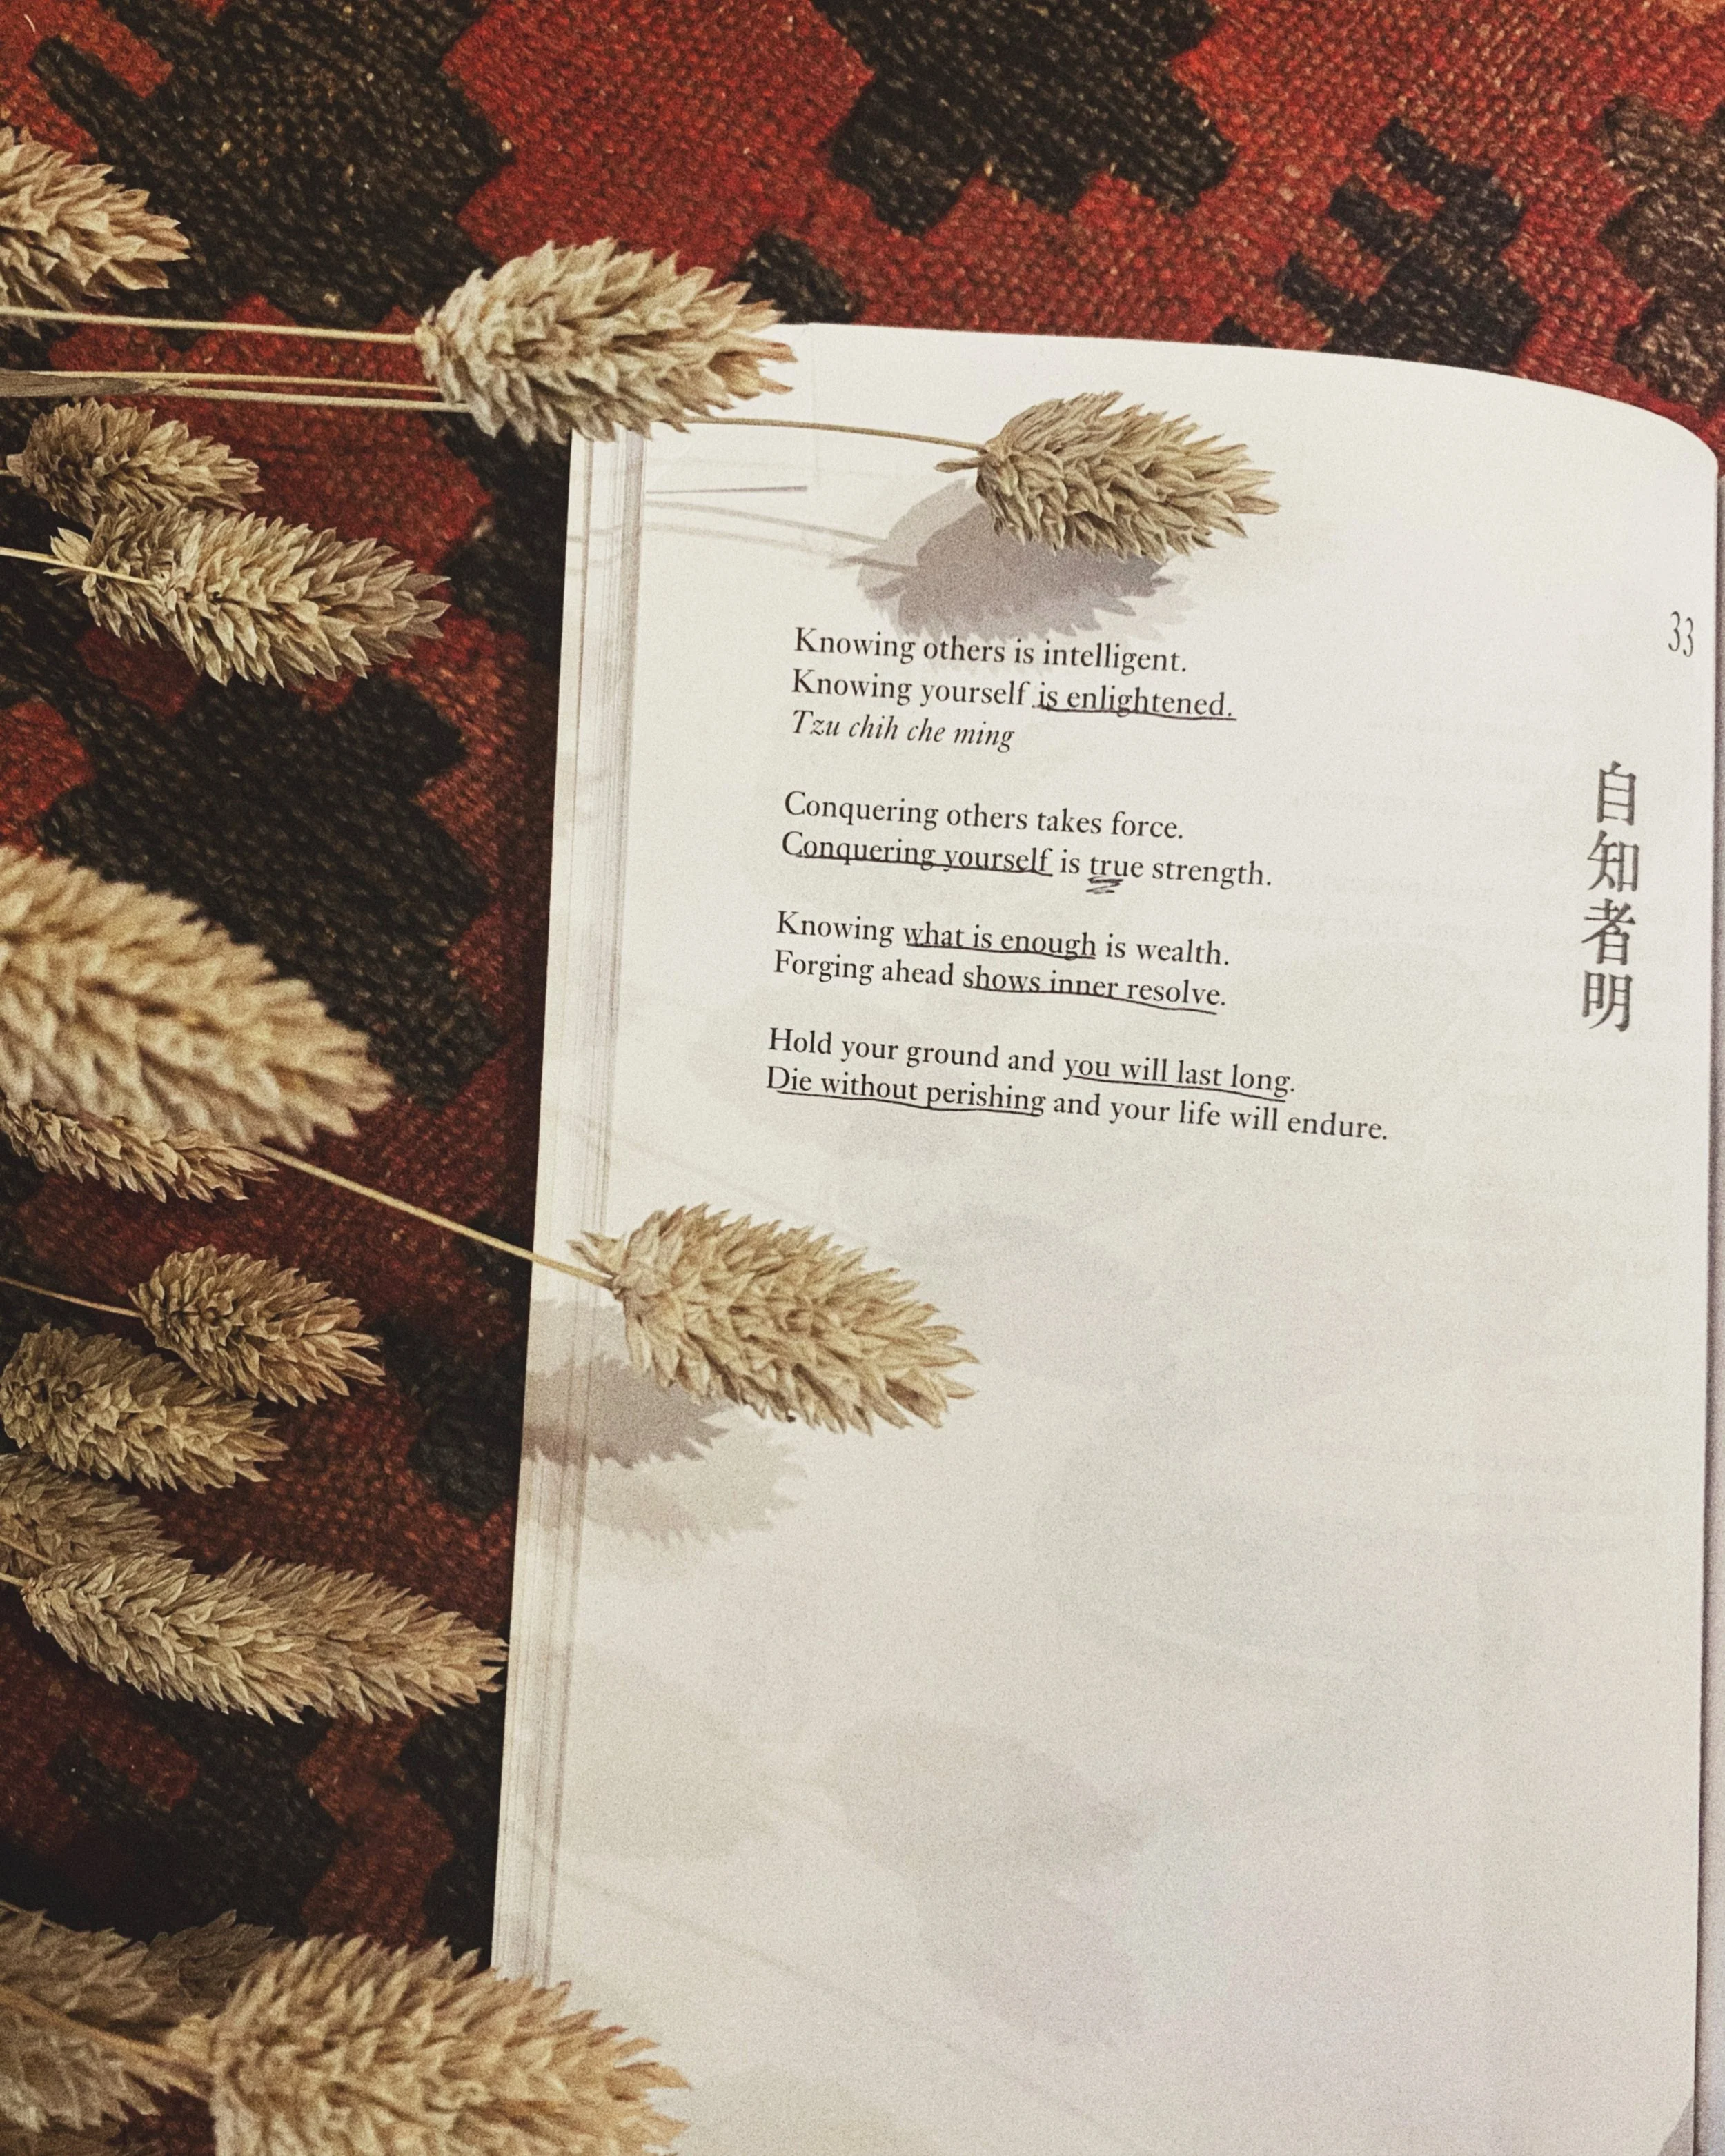 33
Knowing others is intelligent.
Knowing yourself is enlightened.
Tzu chih che ming
Conquering others takes force.
Conquering yourself is true strength.
Knowing what is enough is wealth.
Forging ahead shows inner resolve.
Hold your ground and you will last long.
Die without perishing and your life will endure.
自知者明